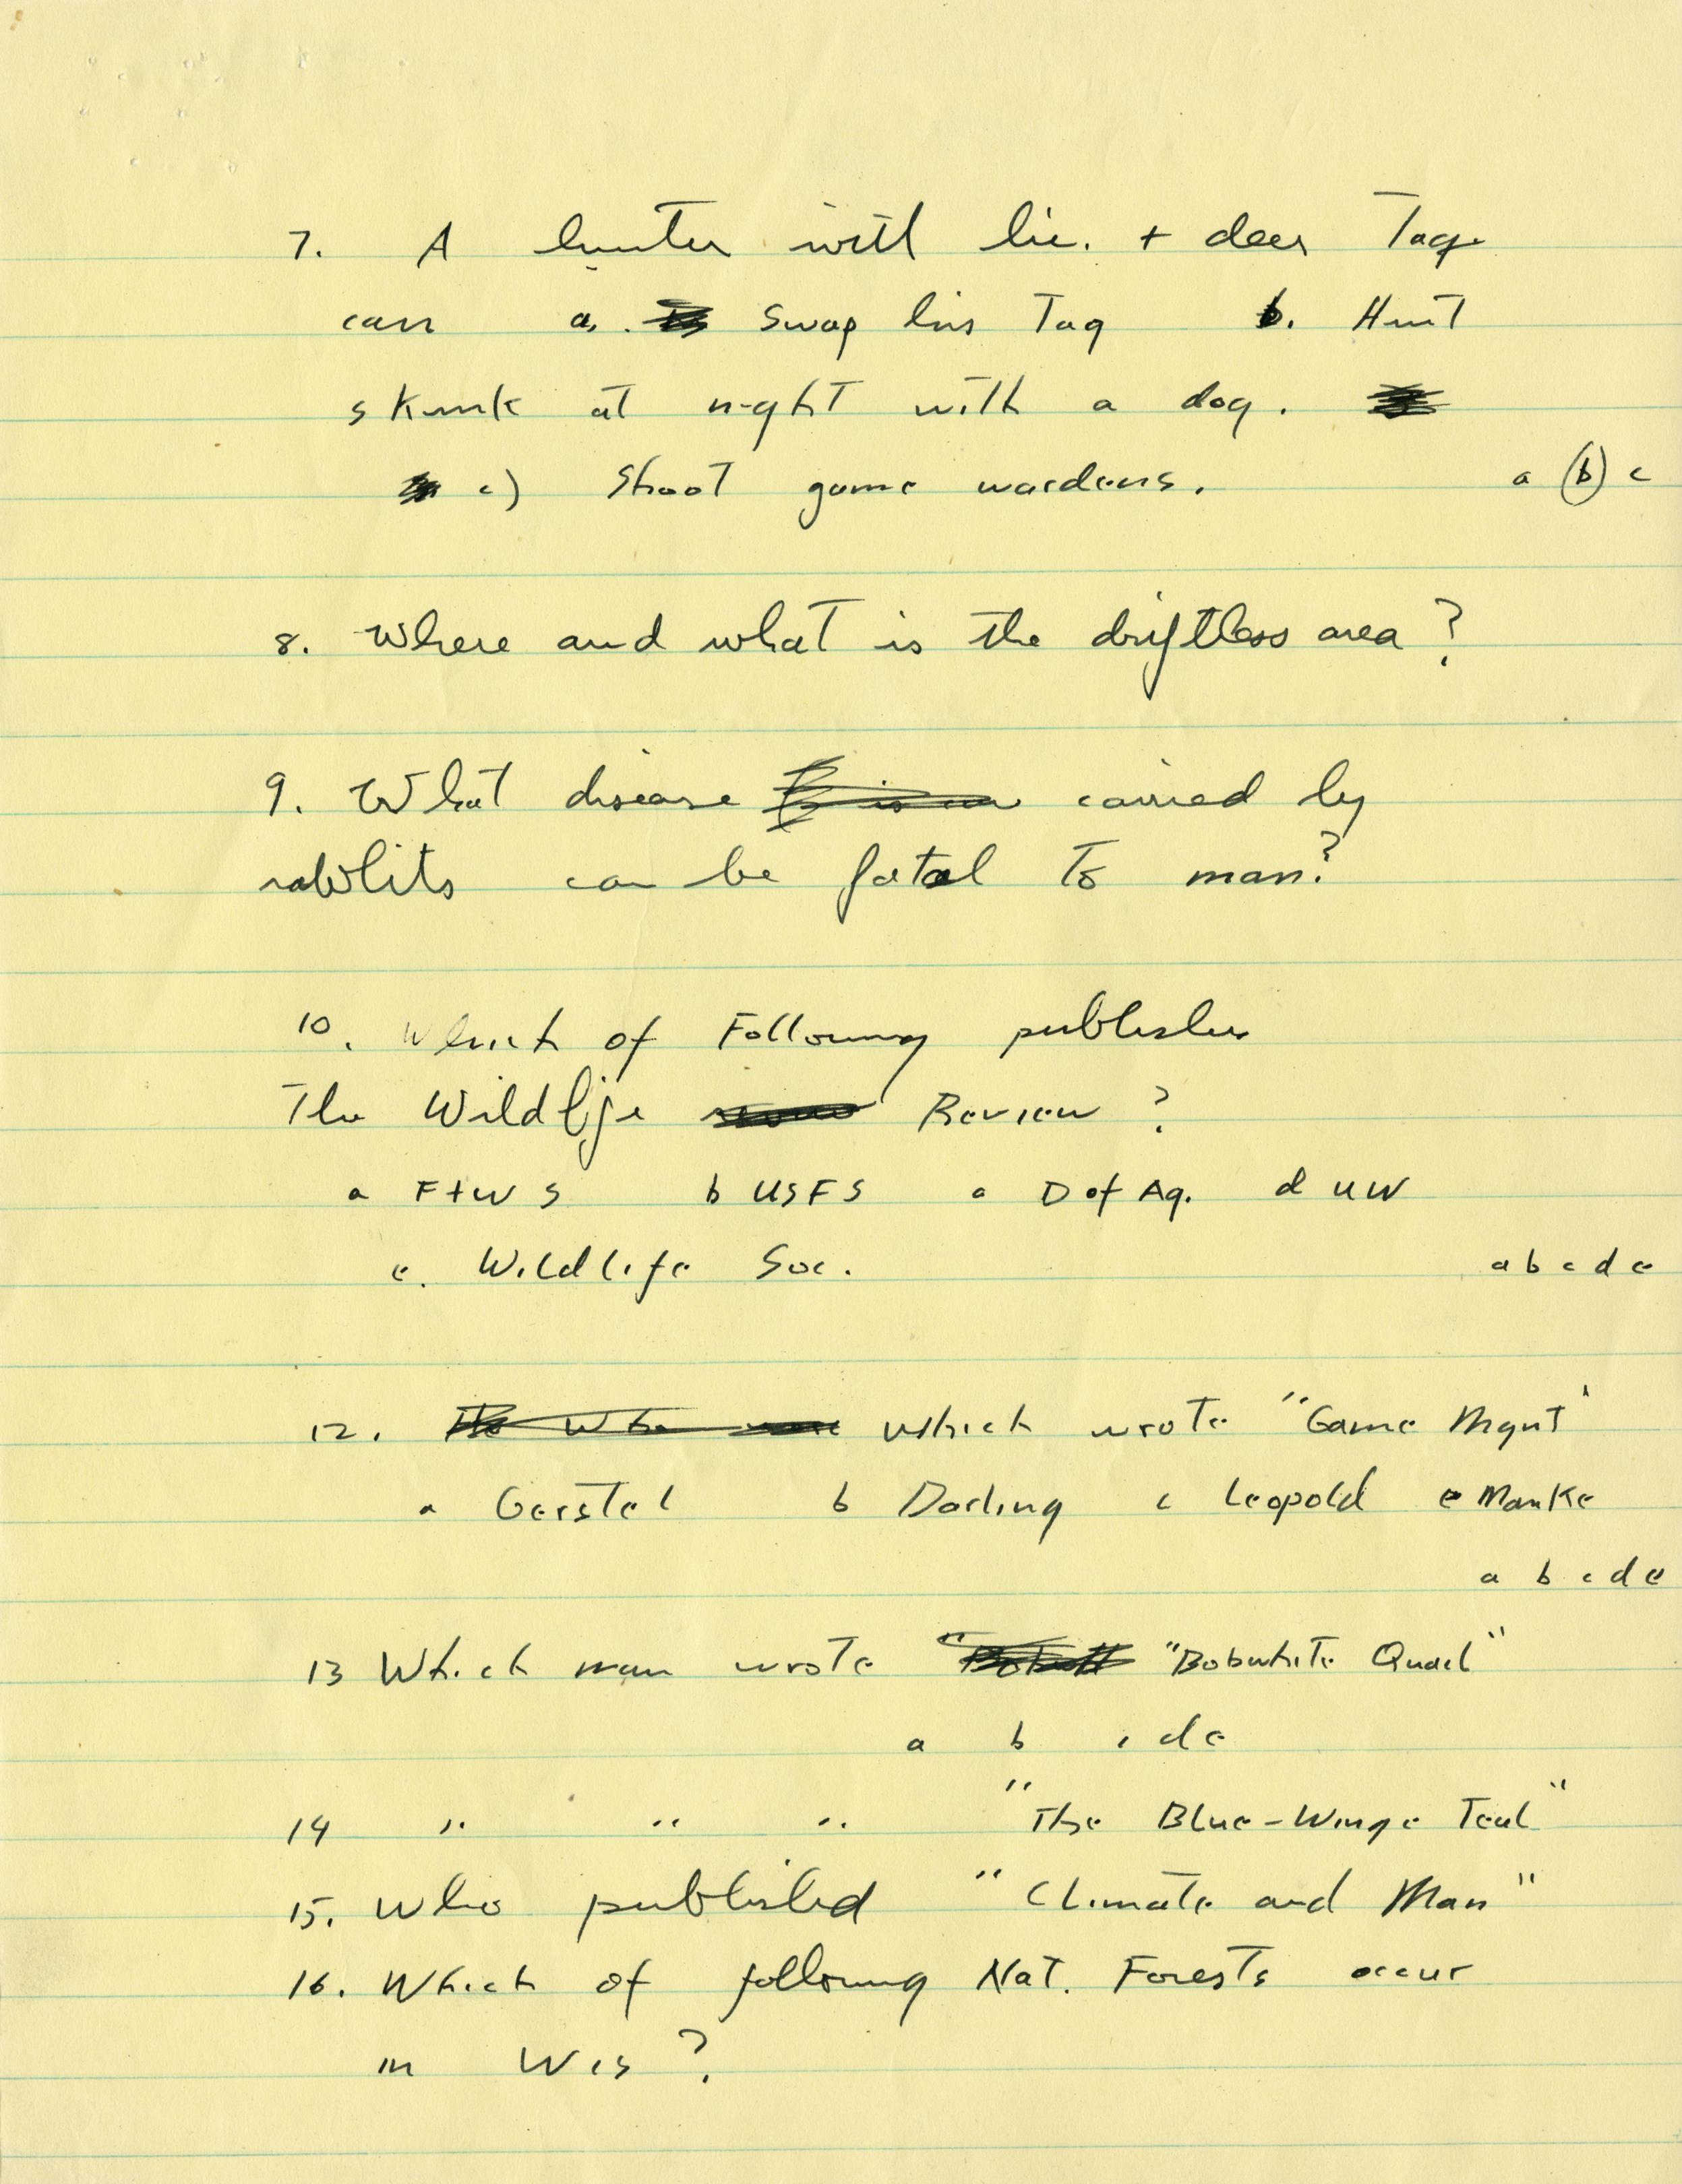 7. A hunter with lic. + deer Tag
can a. Swap his Tag b. Hunt
skunk at night with a dog.
c) Shoot game wardens. a b c
8. Where and what is the driftless area?
9. What disease carried by
rabbits can be fatal To man?
10. Which of Following publishes
The Wildlife Review?
a F+WS b USFS c D of Ag. d UW
e. Wildlife Soc. a b c d e
12. Which wrote "Game Mgnt'
a Gerstel b Darling c Leopold e Manke
a b c d e
13 Which man wrote "Bobwhite Quail"
a b c d e
14 " " " "The Blue-Winge Teal"
15. Who published "Climate and Man"
16. Which of following Nat. Forests occur
in Wis?